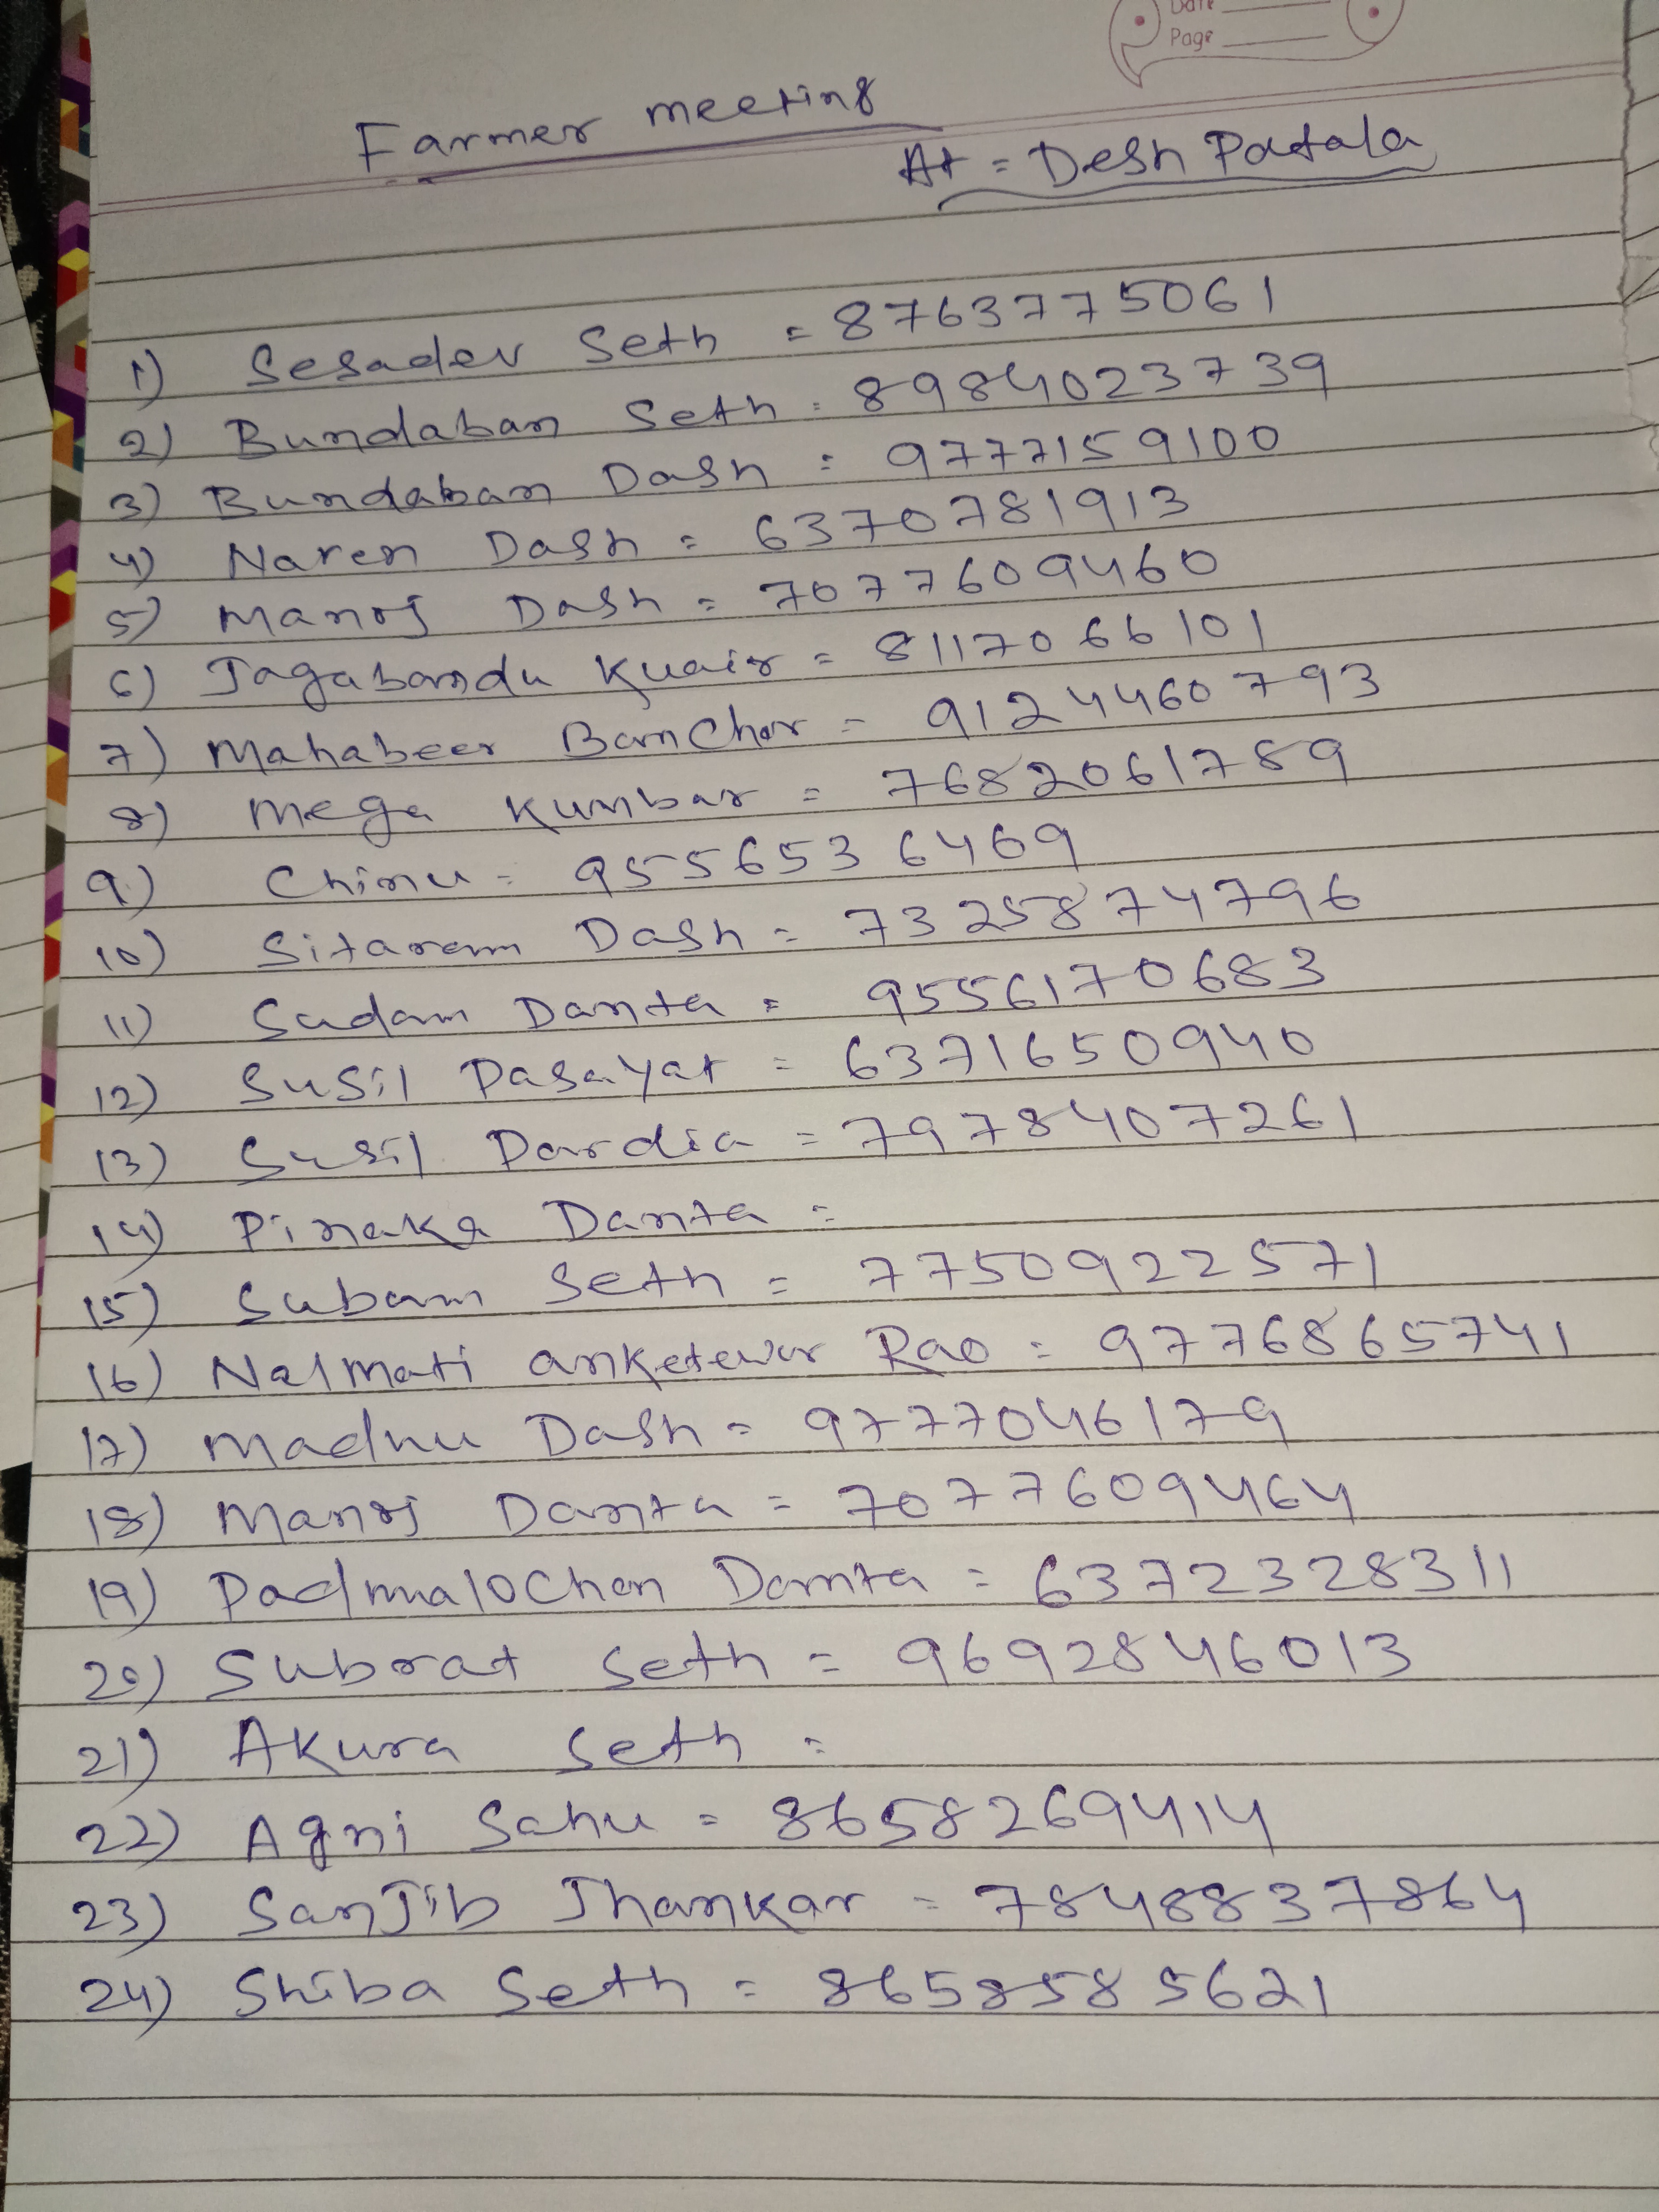 Date
Page
Farmer meeting
At = Desh Patala
1) Sesadev Seth = 8763775061
2) Bundaban Seth = 8984023739
3) Bundaban Dash = 9777159100
4) Naren Dash = 6370781913
5) Manoj Dash = 7077609460
6) Jagabandu Kuair = 8117066101
7) Mahabeer Banchor = 9124460793
8) Mega Kumbar = 7682061789
9) Chinu = 9556536469
10) Sitaram Dash = 7325874796
11) Sudam Danta = 9556170683
12) Susil Pasayat = 6371650940
13) Susil Pardia = 7978407261
14) Pinaka Danta =
15) Subam Seth = 7750922571
16) Nalmati anketewar Rao = 9776865741
17) Madhu Dash = 9777046179
18) Manoj Danta = 7077609464
19) Padmalochan Danta = 6372328311
20) Subrat Seth = 9692846013
21) Akura Seth =
22) Agni Sahu = 8658269414
23) Sanjib Jhankar = 7848837864
24) Shiba Seth = 8658585621